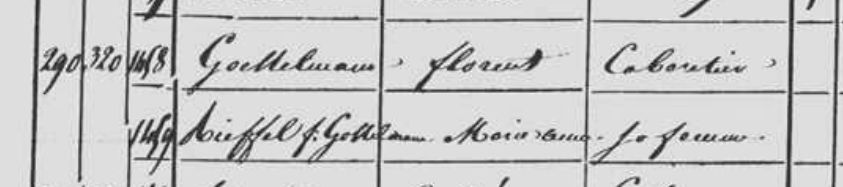 290 320 1458 Goettelmann florent Cabaretier
1459 Rieffel f. Gottelmann Marie anne sa femme